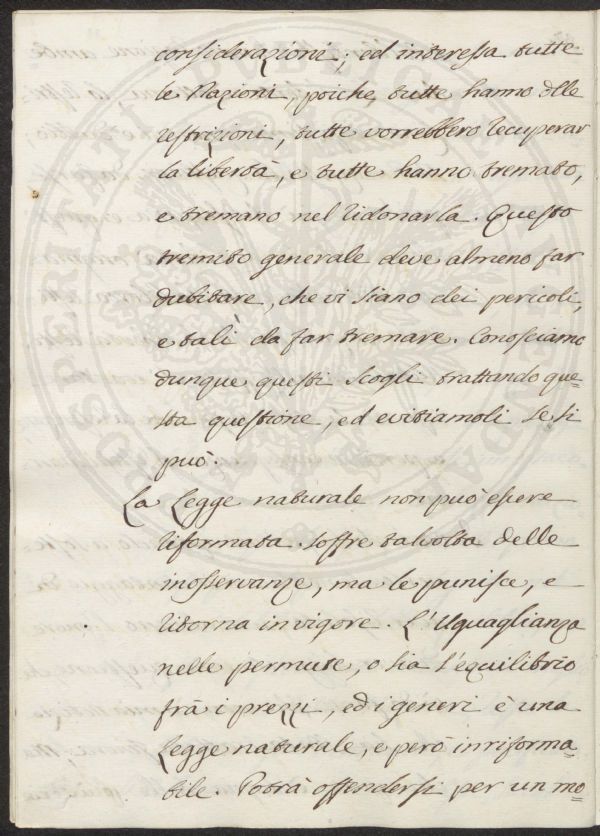 considerazioni; ed interessa tutte
le Nazioni, poiche tutte hanno dlle
restrizioni, tutte vorrebbero recuperar
la libertà, e tutte hanno tremato,
e tremano nel ridonarla. Questo
tremito generale deve almeno far
dubitare, che vi siano dei pericoli,
e tali da far tremare. Conosciamo
dunque questi scogli trattando que=
sta questione, ed evitiamoli se si
può.
La Legge naturale non può essere
riformata. Soffre talvolta delle
inosservanze, ma le punisce, e
ritorna in vigore. L'Uguaglianza
nelle permute, o sia l'equilibrio
frà i prezzi, ed i generi è una
Legge naturale, e però inriforma=
bile. Potrà offendersi per un mo=